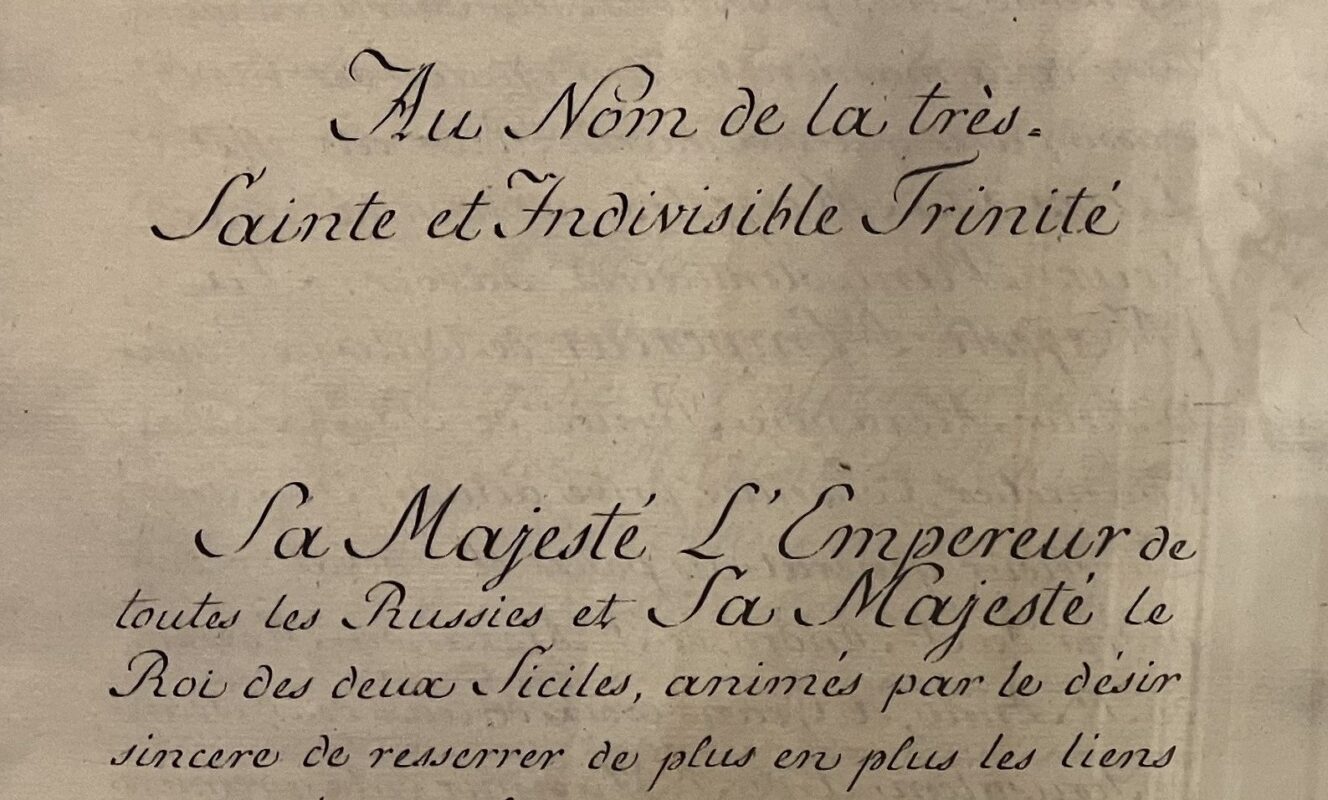 Au Nom de la très-
Sainte et Indivisible Trinité
Sa Majesté L'Empereur de
toutes les Russies et Sa Majesté le
Roi des deux Siciles, animés par le désir
sincere de resserrer de plus en plus les liens